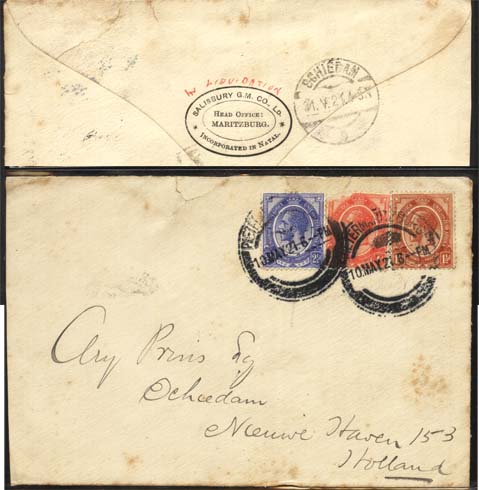 In LIQUIDATION
SALISBURY G.M. CO., LD.
HEAD OFFICE:
MARITZBURG.
* INCORPORATED IN NATAL. *
SCHIEDAM
31.V.21.4-5N
PIETERM
10.MAY.21.6-PM
PIETERM
10.MAY.21.6-PM
Ary Prins Esq
Schiedam
Nieuwe Haven 153
Holland